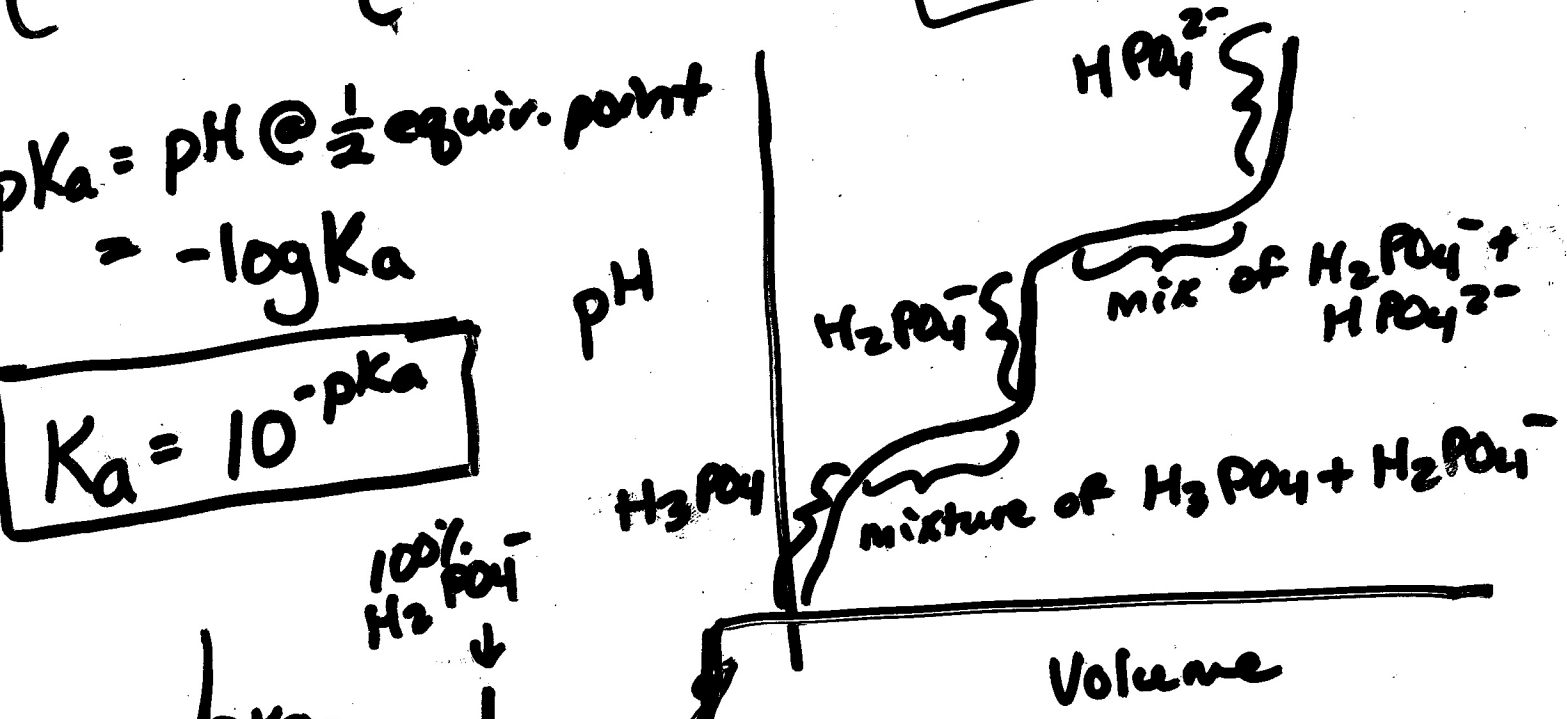 pKa = pH @ 1/2 equiv. point
= -log Ka
Ka = 10^-pKa
100%
H2PO4^-
↓
pH
HPO4^2-
mix of H2PO4^- +
HPO4^2-
H2PO4^-
H3PO4
mixture of H3PO4 + H2PO4^-
Volume